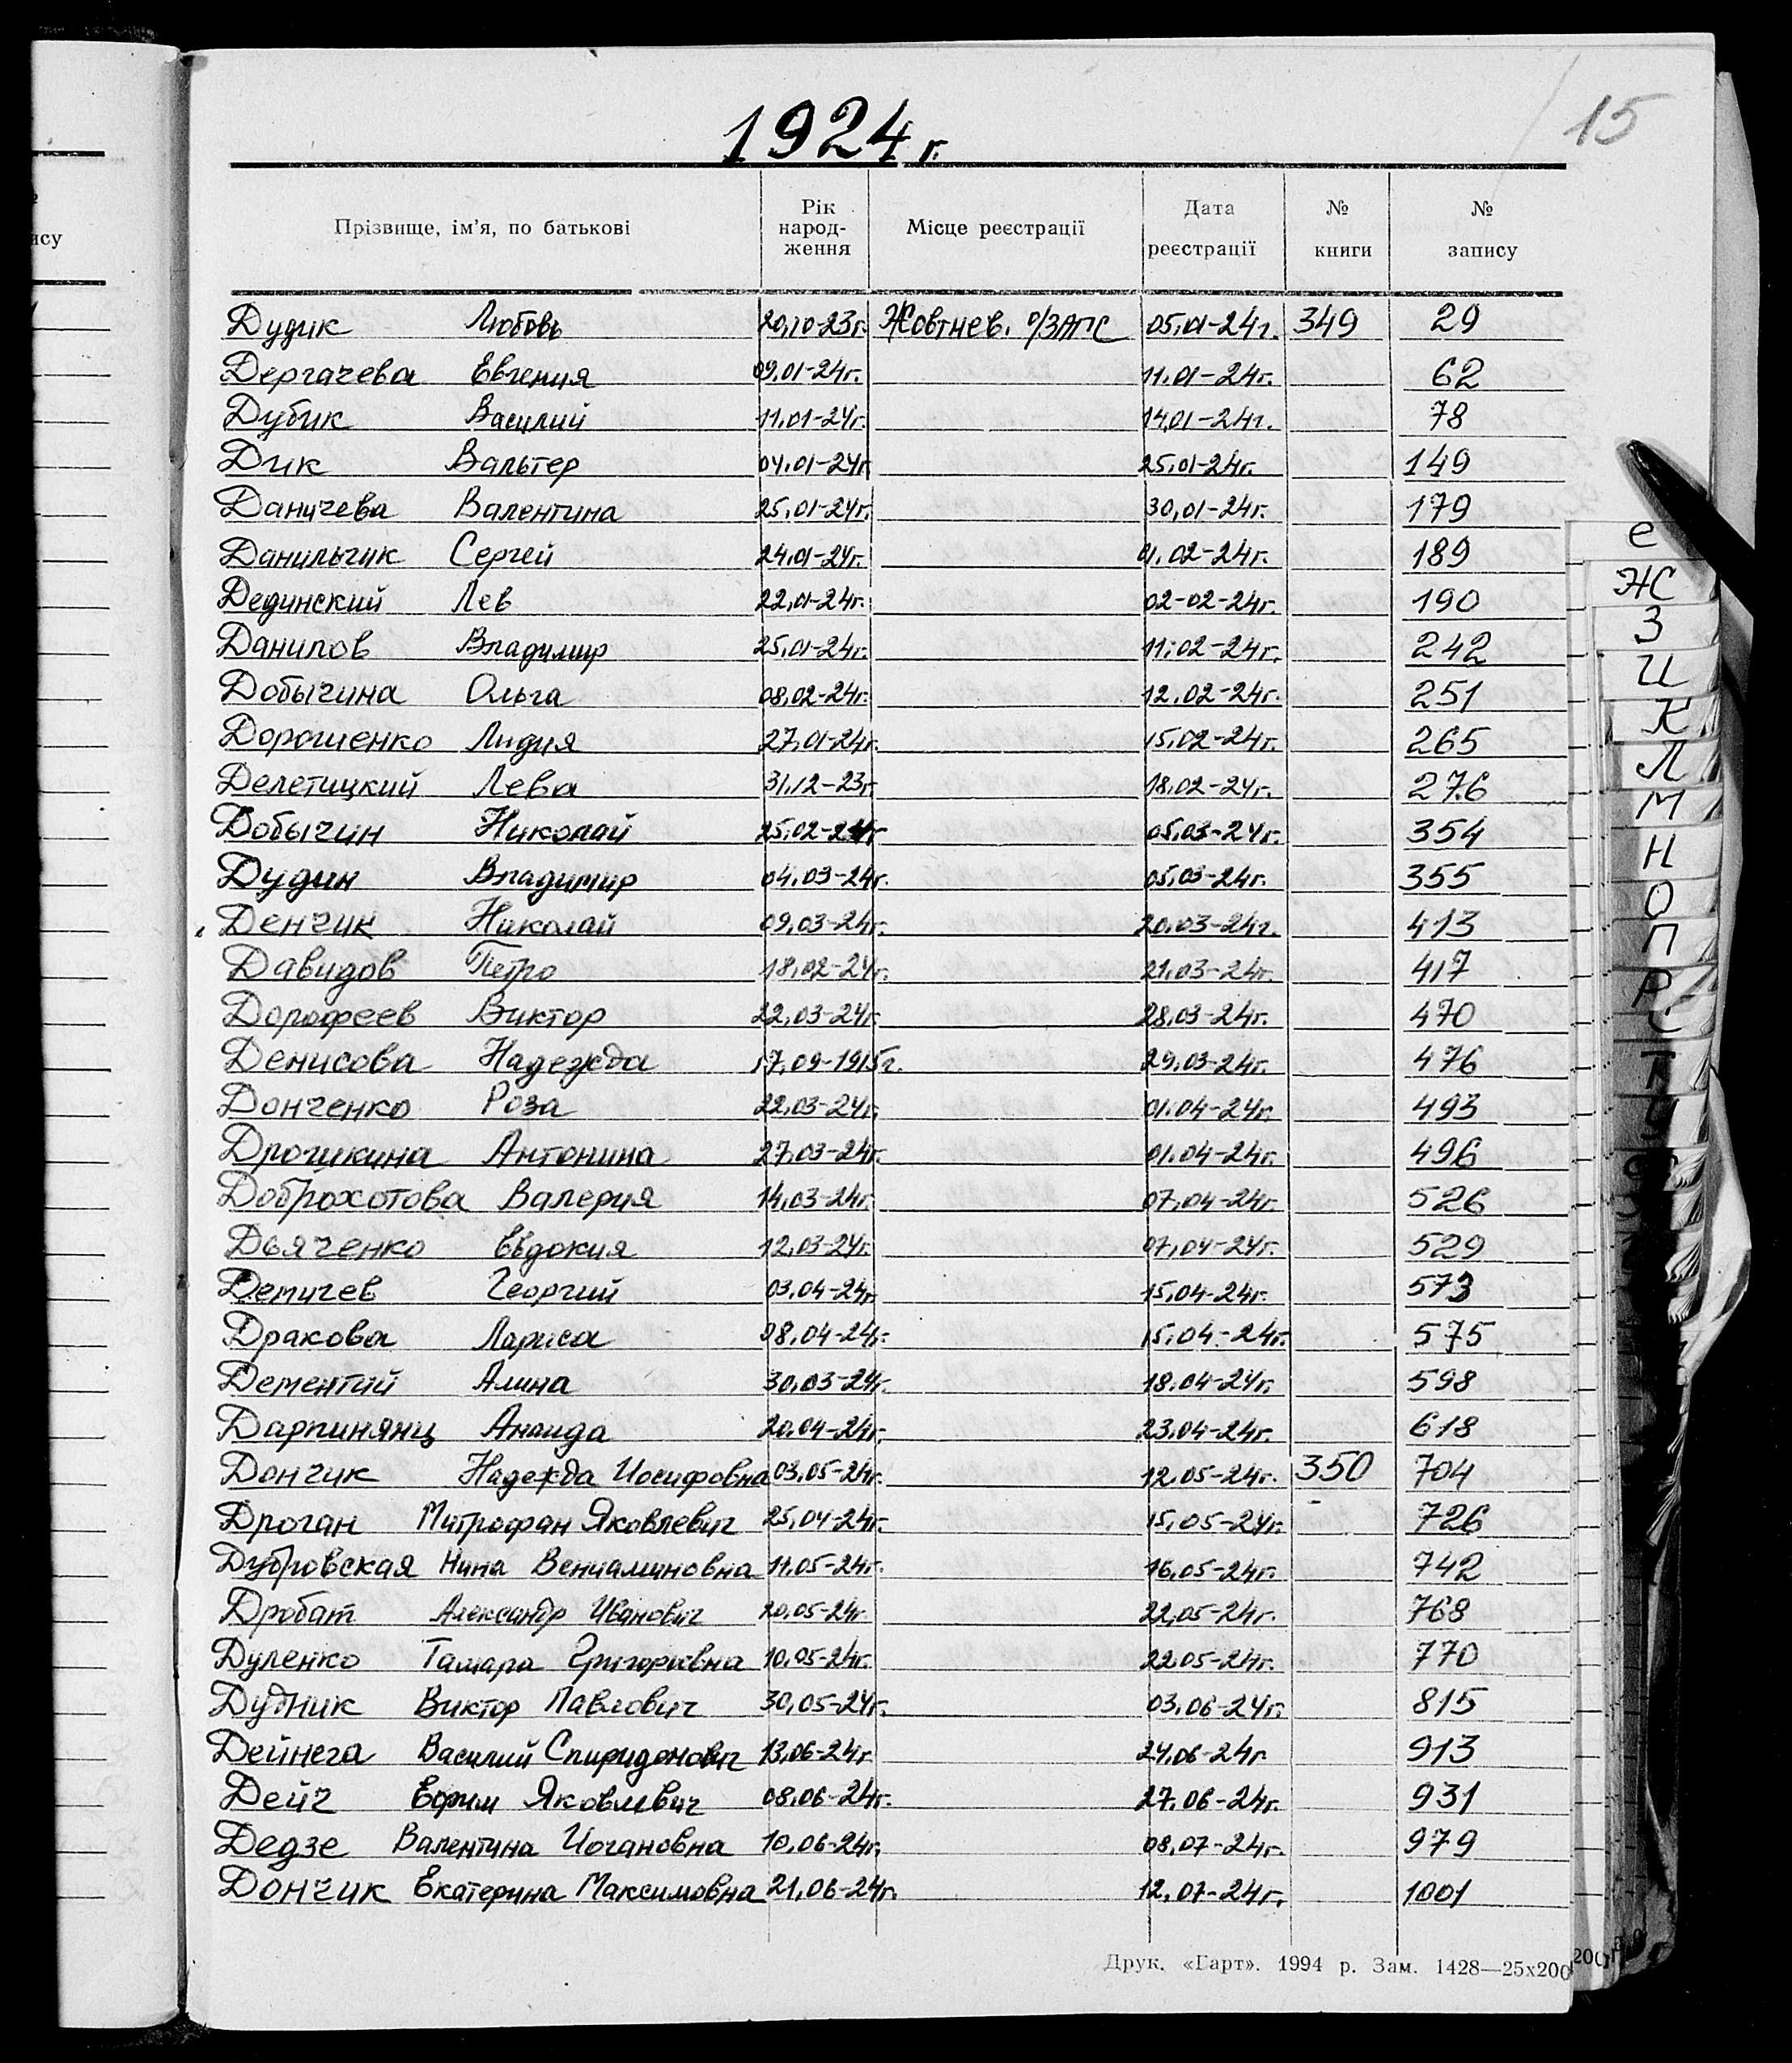 15
1924 г.
Прізвище, ім'я, по батькові Рік народ-ження Місце реєстрації Дата реєстрації № книги № запису
Дудик Любовь 20.10-23г. Жовтнев. о/ЗАГС 05.01-24г. 349 29
Дергачева Евгения 09.01-24г. 11.01-24г. 62
Дубик Василий 11.01-24г. 14.01-24г. 78
Дик Вальтер 04.01-24г 25.01-24г. 149
Даничева Валентина 25.01-24г. 30.01-24г. 179
Данильчик Сергей 24.01-24г. 01.02-24г. 189
Дединский Лев 22.01-24г. 02-02-24г. 190
Данилов Владимир 25.01-24г. 11.02-24г. 242
Добычина Ольга 08.02-24г. 12.02-24г. 251
Дорошенко Лидия 27.01-24г. 15.02-24г. 265
Делетицкий Лева 31.12-23г 18.02-24г. 276
Добычин Николай 25.02-24г 05.03-24г. 354
Дудин Владимир 04.03-24г. 05.03-24г. 355
Денчик Николай 09.03-24г. 20.03-24г. 413
Давидов Петро 18.02-24г. 21.03-24г. 417
Дорофеев Виктор 22.03-24г. 28.03-24г. 470
Денисова Надежда 17.09-1915г. 29.03-24г. 476
Донченко Роза 22.03-24г. 01.04-24г. 493
Дрошкина Антонина 27.03-24г. 01.04-24г. 496
Доброхотова Валерия 14.03-24г. 07.04-24г. 526
Дьяченко Евдокия 12.03-24г. 07.04-24г. 529
Демичев Георгий 03.04-24г. 15.04-24г. 573
Дракова Лариса 08.04-24г. 15.04-24г. 575
Дементий Алина 30.03-24г. 18.04-24г. 598
Дарпинянц Анаида 20.04-24г. 23.04-24г. 618
Дончик Надежда Иосифовна 03.05-24г. 12.05-24г. 350 704
Дроган Митрофан Яковлевич 25.04-24г. 15.05-24г. 726
Дубровская Нина Вениаминовна 11.05-24г. 16.05-24г. 742
Дробат Александр Иванович 20.05-24г. 22.05-24г. 768
Дуленко Тамара Григорьевна 10.05-24г. 22.05-24г. 770
Дудник Виктор Павлович 30.05-24г. 03.06-24г. 815
Дейнега Василий Спиридонович 13.06-24г. 24.06-24г 913
Дейч Ефим Яковлевич 08.06-24г. 27.06-24г. 931
Дедзе Валентина Иогановна 10.06-24г. 08.07-24г. 979
Дончик Екатерина Максимовна 21.06-24г. 12.07-24г. 1001
Друк. «Гарт». 1994 р. Зам. 1428—25х200
е
Ж
З
И
К
Л
М
Н
О
П
Р
С
Т